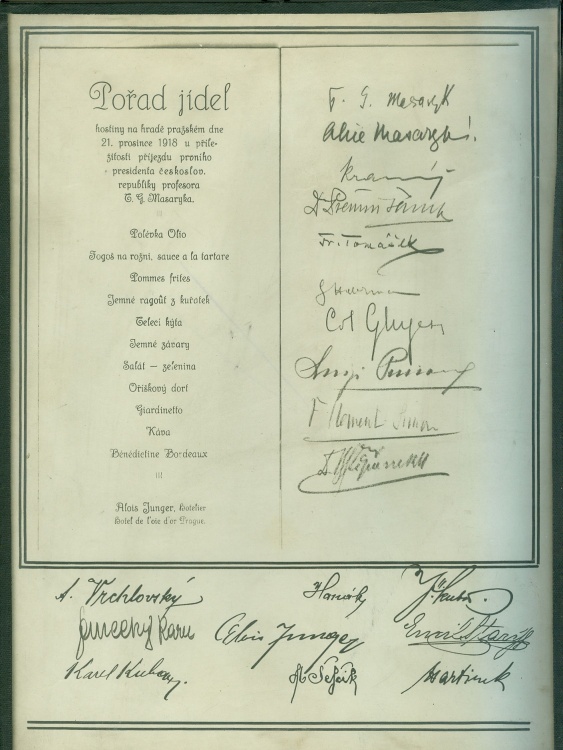 Pořad jídel
hostiny na hradě pražském dne
21. prosince 1918 u příle-
žitosti příjezdu prvního
presidenta českoslov.
republiky profesora
T. G. Masaryka.
Polévka Olio
Fogoš na rožni, sauce a la tartare
Pommes frites
Jemné ragoût z kuřátek
Telecí kýta
Jemné závary
Salát — zelenina
Oříškový dort
Giardinetto
Káva
Bénédictine Bordeaux
Alois Junger, hotelier
Hotel de l'oie d'or Prague.
T. G. Masaryk
Alice Masaryková.
Kramář
Fr. Tomášek
G Haberman
Col
Luigi
F Clement Simon
A. Vrchlovský
Karel
Alois Junger
Martinek